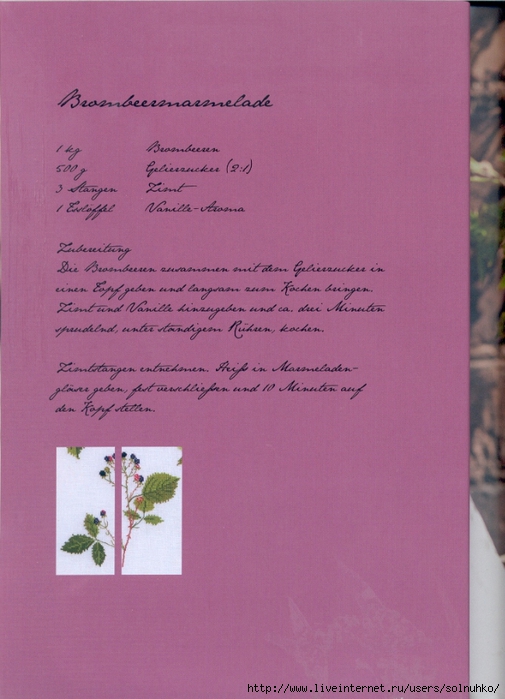 Brombeermarmelade
1 kg Brombeeren
500 g Gelierzucker (2:1)
3 Stangen Zimt
1 Esslöffel Vanille-Aroma
Zubereitung
Die Brombeeren zusammen mit dem Gelierzucker in
einen Topf geben und langsam zum Kochen bringen.
Zimt und Vanille hinzugeben und ca. drei Minuten
sprudelnd, unter ständigem Rühren, kochen.
Zimtstangen entnehmen. Heiß in Marmeladen-
gläser geben, fest verschließen und 10 Minuten auf
den Kopf stellen.
http://www.liveinternet.ru/users/solnuhko/